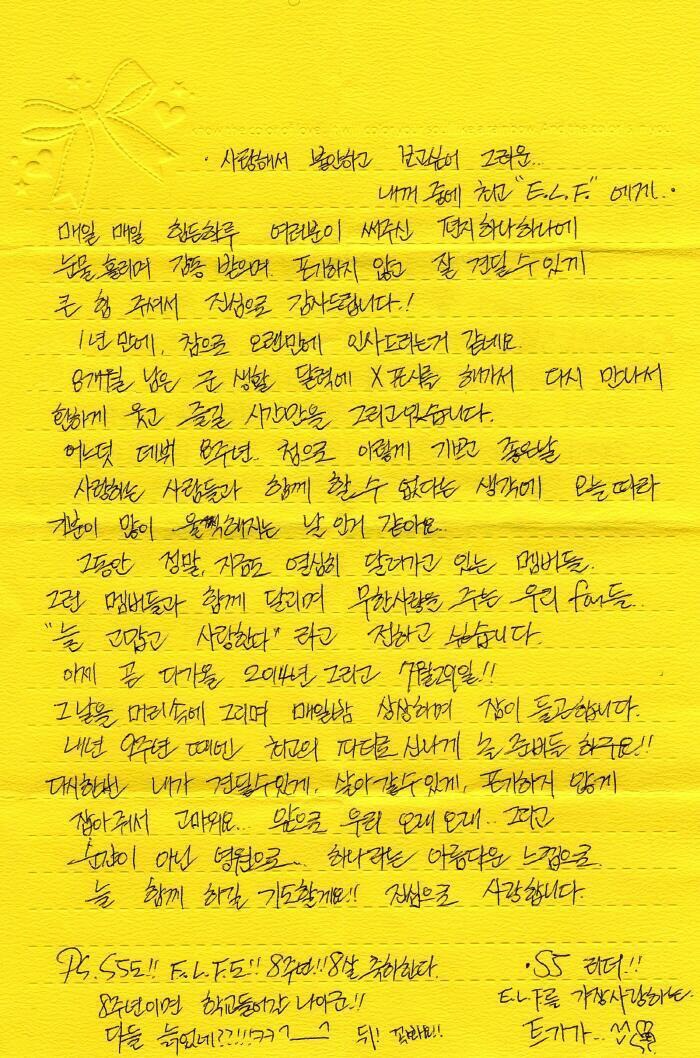 ·사랑해서 불안하고 보고싶어 그리운..
내꺼 중에 최고 "E.L.F." 에게..·
매일 매일 힘든하루 여러분이 써주신 편지하나하나에
눈물 흘리며 감동 받으며 포기하지 않고 잘 견딜수 있게
큰 힘 주셔서 진심으로 감사드립니다.!
1년 만에, 참으로 오랜만에 인사드리는거 같네요.
8개월 남은 군 생활 달력에 X표시를 해가며 다시 만나서
함하게 웃고 즐길 시간만을 그리고있습니다.
어느덧 데뷔 8주년.. 참으로 이렇게 기쁘고 좋은날
사랑하는 사람들과 함께 할 수 없다는 생각에 오늘따라
기분이 많이 울쩍해지는 날 인거 같아요..
그동안 정말, 지금도 열심히 달려가고 있는 멤버들.
그런 멤버들과 함께 달리며 무한사랑을 주는 우리 fan들..
"늘 고맙고 사랑한다" 라고 전하고 싶습니다.
이제 곧 다가올 2014년 그리고 7월29일!!
그날을 머리속에 그리며 매일밤 상상하며 잠이 들곤합니다.
내년 9주년 때엔 최고의 파티로 신나게 놀 준비들 하구요!!
다시한번 내가 견딜수있게, 살아갈수있게, 포기하지 않게
잡아줘서 고마워요... 앞으로 우리 오래오래.. 그리고
순간이 아닌 영원으로... 하나라는 아름다운 느낌으로
늘 함께 하길 기도할게요!! 진심으로 사랑합니다.
PS. SS5도!! E.L.F도!! 8주년!!8살 축하한다.
8주년이면 학교들어갈 나이군!!
다들 늙었네??!!!ㅋㅋ^__^ 뒤!
·SJ 리더!!
E.L.F를 가장사랑하는
트기가..^^